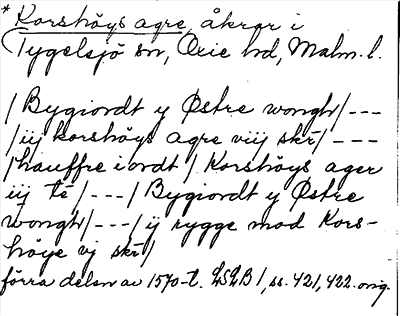 * Korshöys agre, åkrar i
Tygelsjö sn, Oxie hd, Malm. l.
/ Bygiordt y Østre wongh/ ---
/ iij korshöys agre viij skr/ ---
/ hauffre iordt / Korshöys ager
iij te/ --- / Bygiordt y Østre
wongh/ --- / ij rygge mod Kors-
höye vj skr/
förra delen av 1570-t. LSLB 1, ss. 421, 422. orig.